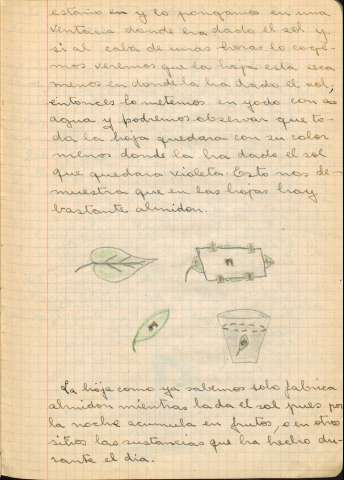 estaño en y lo pongamos en una
ventana donde ha dado el sol y
si al cabo de unas horas lo coge-
mos veremos que la hoja esta seca
menos en donde la ha dado el sol,
entonces lo metemos en yodo con
agua y podremos observar que to-
da la hoja quedara con su color
menos donde la ha dado el sol
que quedara violeta. Esto nos de-
muestra que en las hojas hay
bastante almidon.
La hoja como ya sabemos solo fabrica
almidon mientras la da el sol pues por
la noche acumula en frutos, o en otros
sitios las sustancias que ha hecho du-
rante el dia.